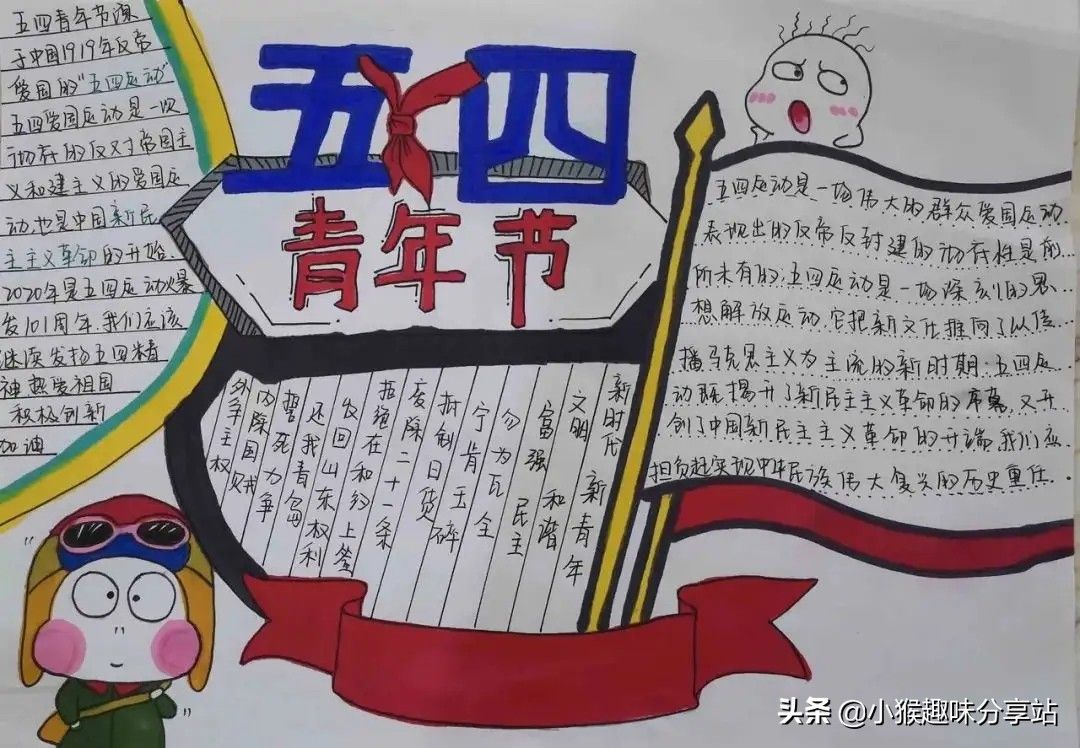 五四
青年节
五四青年节源
于中国1919年反帝
爱国的"五四运动"
五四爱国运动是一次
彻底的反对帝国主
义和建主义的爱国运
动也是中国新民
主主义革命的开始.
2020年是五四运动爆
发101周年,我们应该
继续发扬五四精
神热爱祖国
积极创新
加油
五四运动是一场伟大的群众爱国运动.
表现出的反帝反封建的彻底性是前
所未有的.五四运动是一场深刻的思
想解放运动,它把新文化推向了以传
播马克思主义为主流的新时期;五四运
动既揭开了新民主主义革命的序幕,又开
创了中国新民主主义革命的开端.我们应
担负起实现中华民族伟大复兴的历史重任.
新时代 新青年
文明 和谐
富强 民主
勿为瓦全
宁肯玉碎
抵制日货
废除二十一条
拒绝在和约上签
收回山东权利
还我青岛
誓死力争
内除国贼
外争主权
头条 @小猴趣味分享站